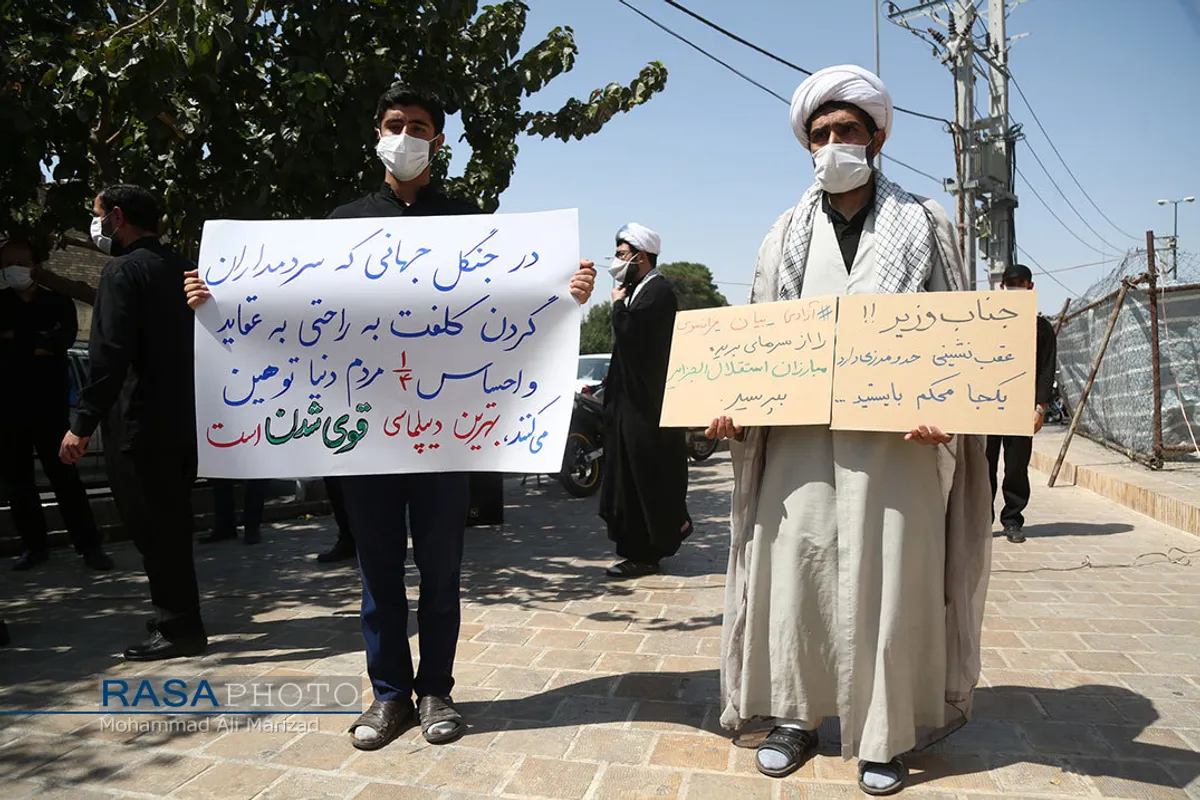 در جنگل جهانی که سردمداران
گردن کلفت به راحتی به عقاید
و احساس ۱/۴ مردم دنیا توهین
می‌کنند، بهترین دیپلماسی قوی شدن است
جناب وزیر !!
عقب نشینی حد و مرزی دارد
یکجا محکم بایستید ...
#آزادی بیان فرانسوی
را از سرهای بریده
مبارزان استقلال الجزایر
بپرسید.
RASA PHOTO
Mohammad Ali Marizad